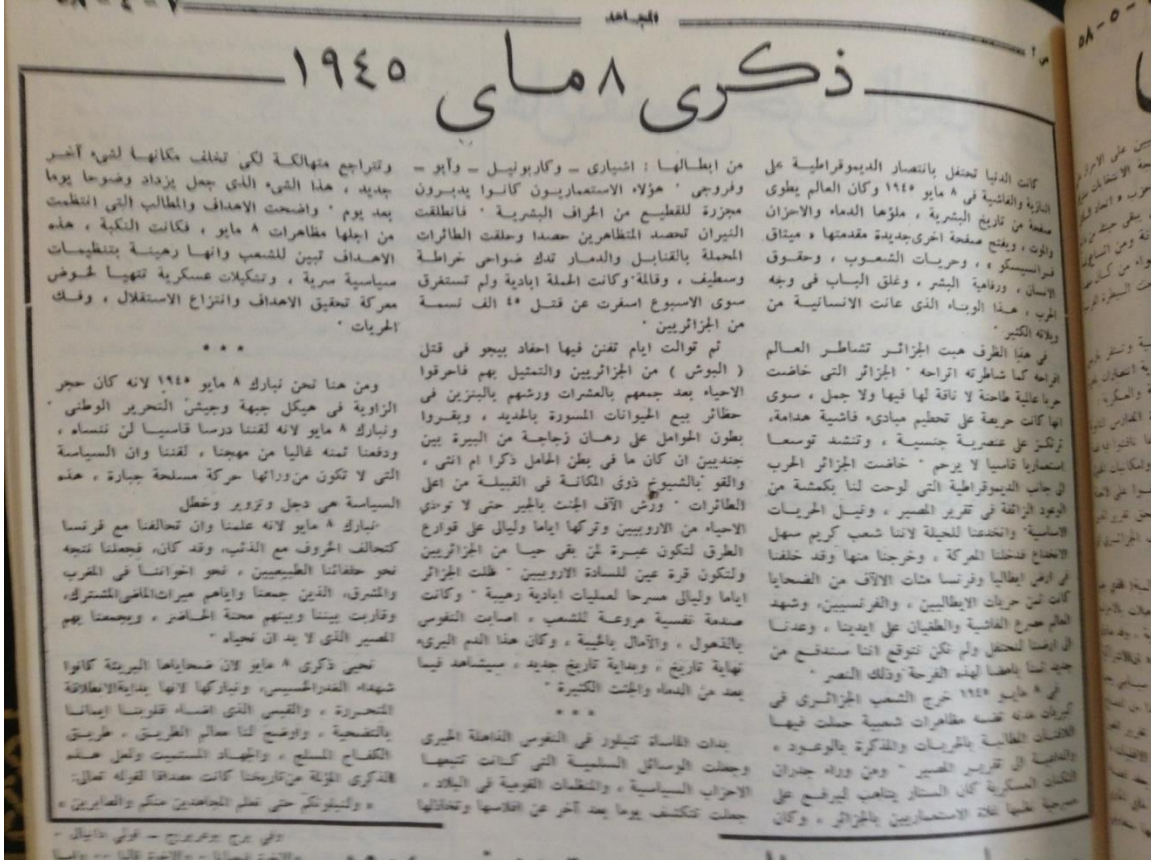 المجاهد
ذكرى ٨ ماي ١٩٤٥
كانت الدنيا تحتفل بانتصار الديموقراطية على
النازية والفاشية في ٨ مايو ١٩٤٥ وكان العالم يطوى
صفحة من تاريخ البشرية ، ملؤها الدماء والاحزان
والموت ، ويفتح صفحة اخرى جديدة مقدمتها « ميثاق
فرانسيسكو » ، وحريات الشعوب ، وحقوق
الانسان ، ورفاهية البشر ، وغلق الباب فى وجه
الحرب ، هذا الوباء الذى عانت الانسانية من
ويلاته الكثير ٠
فى هذا الظرف هبت الجزائر تشاطر العالم
افراحه كما شاطرته اتراحه ٠ الجزائر التى خاضت
حربا عالمية طاحنة لا ناقة لها فيها ولا جمل ، سوى
انها كانت حريصة على تحطيم مبادىء فاشية هدامة،
ترتكز على عنصرية جنسية ، وتنشد توسعا
استعماريا قاسيا لا يرحم ٠ خاضت الجزائر الحرب
الى جانب الديموقراطية التى لوحت لنا بكمشة من
الوعود الزائفة فى تقرير المصير ، ونيل الحريات
الاساسية٠ وانخدعنا للحيلة لاننا شعب كريم سهل
الانخداع فدخلنا المعركة ، وخرجنا منها وقد خلفنا
فى ارض ايطاليا وفرنسا مئات الالآف من الضحايا
كانت ثمن حريات الايطاليين ، والفرنسيين، وشهد
العالم مصرع الفاشية والطغيان على ايدينا ، وعدنا
الى ارضنا لنحتفل ولم نكن نتوقع اننا سندفع من
جديد ثمنا باهضا لهذه الفرحة وذلك النصر ٠
فى ٨ مايو ١٩٤٥ خرج الشعب الجزائرى فى
كبريات مدنه تضمه مظاهرات شعبية حملت فيها
اللافتات الطالبة بالحريات والمذكرة بالوعود ،
والداعية الى تقرير المصير ٠ ومن وراء جدران
الثكنات العسكرية كان الستار يتاهب ليرفع على
مسرحية نظمها غلاة الاستعماريين بالجزائر ، وكان
من ابطالها : اشيارى ــ وكاربونيل ــ وآبو ــ
وفروجى ٠ هؤلاء الاستعماريون كانوا يدبرون
مجزرة للقطيع من الخراف البشرية ٠ فانطلقت
النيران تحصد المتظاهرين حصدا وحلقت الطائرات
المحملة بالقنابل والدمار تدك ضواحى خراطة
وسطيف ، وقالمة٠وكانت الحملة ابادية ولم تستغرق
سوى الاسبوع اسفرت عن قتل ٤٥ الف نسمة
من الجزائريين ٠
ثم توالت ايام تفنن فيها احفاد بيجو فى قتل
( البوش ) من الجزائريين والتمثيل بهم فاحرقوا
الاحياء بعد جمعهم بالعشرات ورشهم بالبنزين فى
حظائر بيع الحيوانات المسورة بالحديد ، وبقروا
بطون الحوامل على رهان زجاجة من البيرة بين
جنديين ان كان ما فى بطن الحامل ذكرا ام انثى ،
والقو بالشيوخ ذوى المكانة فى القبيلة من اعلى
الطائرات ٠ ورش الآف الجنث بالجير حتى لا توذي
الاحياء من الاروبيين وتركها اياما وليالى على قوارع
الطرق لتكون عبرة لمن بقى حيا من الجزائريين
ولتكون قرة عين للسادة الاروبيين ٠ ظلت الجزائر
اياما وليالى مسرحا لعمليات ابادية رهيبة ٠ وكانت
صدمة نفسية مروعة للشعب ، اصابت النفوس
بالذهول ، والآمال بالخيبة ، وكان هذا الدم البرىء
نهاية تاريخ ، وبداية تاريخ جديد ، سيشاهد فيما
بعد من الدماء والجثث الكثيرة ٠
* * *
بدات الماساة تتبلور فى النفوس الذاهلة الحيرى
وجعلت الوسائل السلمية التى كانت تتبعها
الاحزاب السياسية ، والمنظمات القومية فى البلاد ،
جعلت تتكشف يوما بعد آخر عن افلاسها وتخاذلها
وتتراجع متهالكة لكى تخلف مكانها لشىء آخر
جديد ، هذا الشىء الذى جعل يزداد وضوحا يوما
بعد يوم ٠ واضحت الاهداف والمطالب التى انتظمت
من اجلها مظاهرات ٨ مايو ، فكانت النكبة ، هذه
الاهداف تبين للشعب وانها رهينة بتنظيمات
سياسية سرية ، وتشكيلات عسكرية تتهيا لخوض
معركة تحقيق الاهداف وانتزاع الاستقلال ، وفك
الحريات ٠
* * *
ومن هنا نحن نبارك ٨ مايو ١٩٤٥ لانه كان حجر
الزاوية فى هيكل جبهة وجيش التحرير الوطنى ٠
ونبارك ٨ مايو لانه لقننا درسا قاسيا لن ننساه ،
ودفعنا ثمنه غاليا من مهجنا ، لقننا وان السياسة
التى لا تكون من ورائها حركة مسلحة جبارة ، هذه
السياسة هى دجل وتزوير وخطل
نبارك ٨ مايو لانه علمنا وان تحالفنا مع فرنسا
كتحالف الخروف مع الذئب، وقد كان، فجعلنا نتجه
نحو حلفائنا الطبيعيين ، نحو اخواننا فى المغرب،
والمشرق، الذين جمعنا واياهم ميراث الماضى المشترك،
وقاربت بيننا وبينهم محنة الحاضر ، ويجمعنا بهم
المصير الذى لا بد ان نحياه ٠
نحيى ذكرى ٨ مايو لان ضحاياها البريئة كانوا
شهداء الغدر الخسيس، ونباركها لانها بداية الانطلاقة
المتحررة ، والقبس الذى اضاء قلوبنا ايمانا
بالتضحية ، واوضح لنا معالم الطريق ، طريق
الكفاح المسلح ، والجهاد المستميت ولعل هذه
الذكرى المؤلمة من تاريخنا كانت مصداقا لقوله تعالى:
« ولنبلونكم حتى نعلم المجاهدين منكم والصابرين »